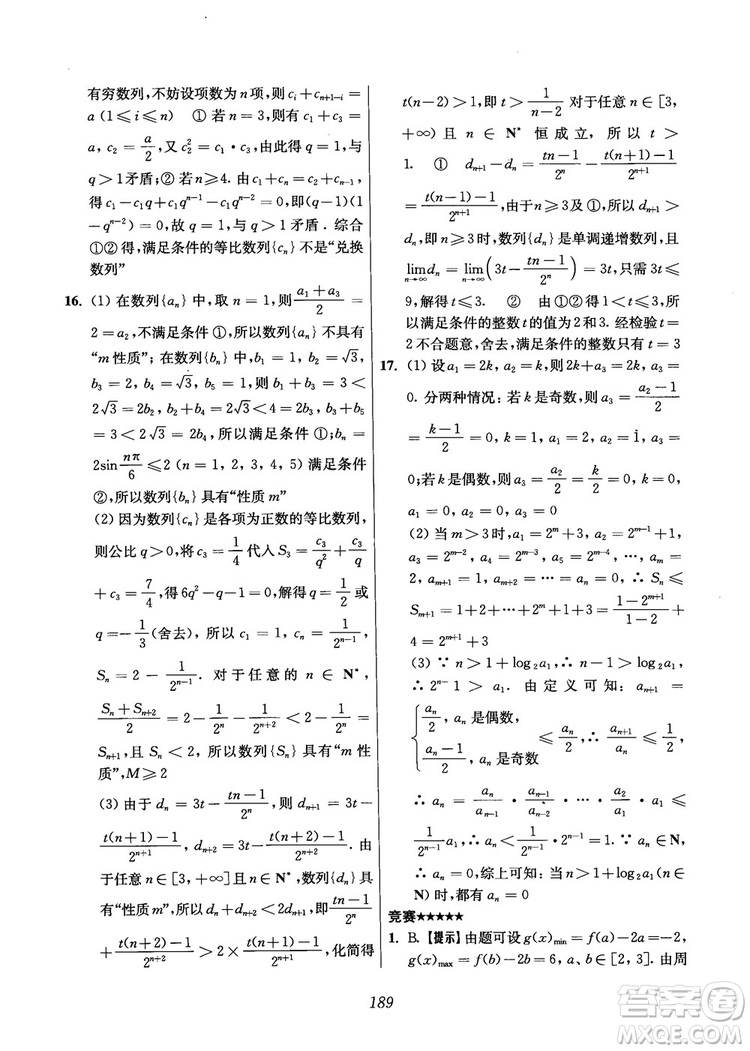 有穷数列,不妨设项数为 n 项,则 c_i + c_{n+1-i} =
a (1≤i≤n)  ① 若 n=3,则有 c_1 + c_3 =
a, c_2 = a/2, 又 c_2^2 = c_1 · c_3, 由此得 q=1,与
q>1 矛盾;② 若 n≥4. 由 c_1 + c_n = c_2 + c_{n-1},
得 c_1 - c_1q + c_1q^{n-1} - c_1q^{n-2} = 0,即(q-1)(1
- q^{n-2}) = 0,故 q=1,与 q>1 矛盾. 综合
①②得,满足条件的等比数列{c_n}不是“兑换
数列”
16. (1) 在数列{a_n}中,取 n=1,则 (a_1 + a_3)/2 =
2 = a_2,不满足条件①,所以数列{a_n}不具有
“m 性质”; 在数列{b_n}中,b_1 = 1, b_2 = √3,
b_3 = 2, b_4 = √3, b_5 = 1,则 b_1 + b_3 = 3 <
2√3 = 2b_2, b_2 + b_4 = 2√3 < 4 = 2b_3, b_3 + b_5
= 3 < 2√3 = 2b_4,所以满足条件①;b_n =
2sin nπ/6 ≤ 2 (n = 1, 2, 3, 4, 5) 满足条件
②,所以数列{b_n}具有“性质 m”
(2) 因为数列{c_n}是各项为正数的等比数列,
则公比 q>0,将 c_3 = 1/4 代入 S_3 = c_3/q^2 + c_3/q
+ c_3 = 7/4,得 6q^2 - q - 1 = 0,解得 q = 1/2 或
q = -1/3 (舍去), 所以 c_1 = 1, c_n = 1/2^{n-1},
S_n = 2 - 1/2^{n-1}. 对于任意的 n ∈ N*,
(S_n + S_{n+2})/2 = 2 - 1/2^n - 1/2^{n+2} < 2 - 1/2^n =
S_{n+1},且 S_n < 2,所以数列{S_n}具有“m 性
质”,M≥2
(3) 由于 d_n = 3t - (tn-1)/2^n,则 d_{n+1} = 3t -
(t(n+1)-1)/2^{n+1}, d_{n+2} = 3t - (t(n+2)-1)/2^{n+2}. 由
于任意 n∈[3, +∞] 且 n∈N*,数列{d_n}具有
“性质 m”,所以 d_n + d_{n+2} < 2d_{n+1},即 (tn-1)/2^n
+ (t(n+2)-1)/2^{n+2} > 2 × (t(n+1)-1)/2^{n+1},化简得
t(n-2) > 1,即 t > 1/(n-2) 对于任意 n∈[3,
+∞) 且 n ∈ N* 恒成立, 所以 t >
1.  ① d_{n+1} - d_n = (tn-1)/2^n - (t(n+1)-1)/2^{n+1}
= (t(n-1)-1)/2^{n+1},由于 n≥3 及①,所以 d_{n+1} >
d_n,即 n≥3 时,数列{d_n}是单调递增数列,且
lim_{n→∞} d_n = lim_{n→∞}(3t - (tn-1)/2^n) = 3t,只需 3t≤
9,解得 t≤3  ② 由①②得 1<t≤3,所
以满足条件的整数 t 的值为 2 和 3. 经检验 t=
2 不合题意,舍去,满足条件的整数只有 t=3
17. (1) 设 a_1 = 2k, a_2 = k,则 a_1 + a_3 = 2k, a_3 =
0. 分两种情况:若 k 是奇数,则 a_3 = (a_2 - 1)/2
= (k-1)/2 = 0, k = 1, a_1 = 2, a_2 = 1, a_3 =
0;若 k 是偶数,则 a_3 = a_2/2 = k/2 = 0, k = 0,
a_1 = 0, a_2 = 0, a_3 = 0
(2) 当 m>3 时,a_1 = 2^m + 3, a_2 = 2^{m-1} + 1,
a_3 = 2^{m-2}, a_4 = 2^{m-3}, a_5 = 2^{m-4}, …, a_m =
2, a_{m+1} = 1, a_{m+2} = … = a_n = 0,所以 S_n ≤
S_{m+1} = 1+2+…+2^m+4 = (1-2^{m+1})/(1-2) +
4 = 2^{m+1} + 3
(3) ∵ n > 1 + log_2 a_1, ∴ n - 1 > log_2 a_1,
∴ 2^{n-1} > a_1. 由定义可知: a_{n+1} =
{ a_n/2, a_n 是偶数,
(a_n - 1)/2, a_n 是奇数 ≤ a_n/2, ∴ a_{n+1}/a_n ≤ 1/2,
∴ a_n = a_n/a_{n-1} · a_{n-1}/a_{n-2} · … · a_2/a_1 · a_1 ≤
1/2^{n-1} a_1, ∴ a_n < 1/2^{n-1} · 2^{n-1} = 1. ∵ a_n ∈ N,
∴ a_n = 0,综上可知: 当 n > 1 + log_2 a_1 (n ∈
N) 时,都有 a_n = 0
竞赛★★★★★
1. B. 【提示】由题可设 g(x)_min = f(a) - 2a = -2,
g(x)_max = f(b) - 2b = 6, a、b∈[2, 3]. 由周
189
答案圈
MXQE.COM